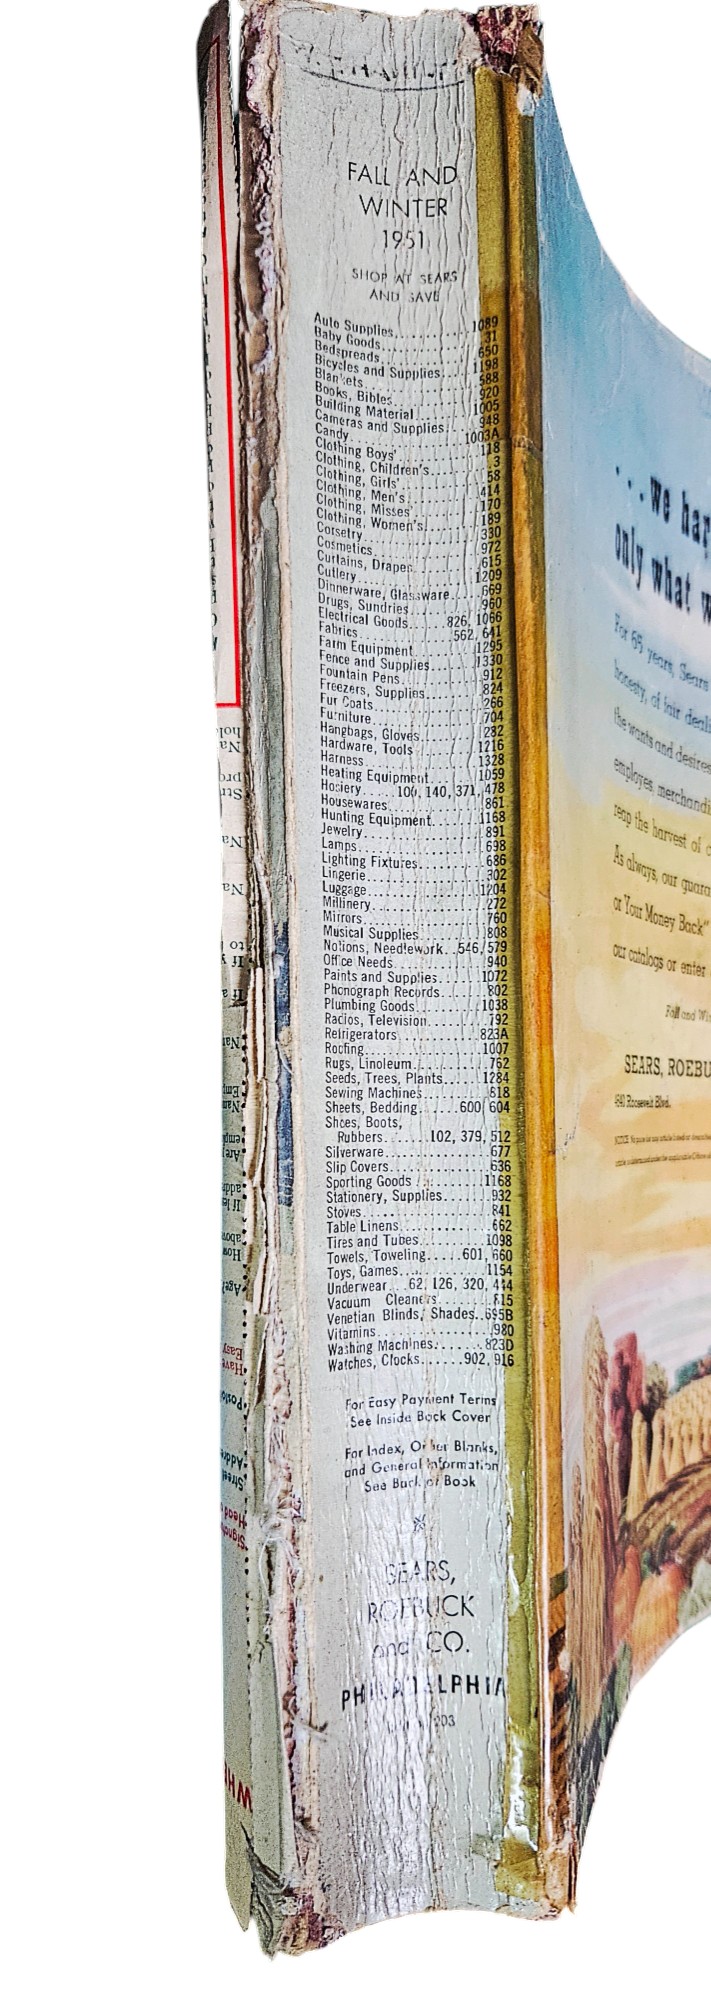 FALL AND
WINTER
1951
SHOP AT SEARS
AND SAVE
Auto Supplies..........1089
Baby Goods..........31
Bedspreads..........650
Bicycles and Supplies....1198
Blankets..........588
Books, Bibles..........920
Building Material..........1005
Cameras and Supplies....948
Candy..........1003A
Clothing Boys'..........118
Clothing, Children's..........3
Clothing, Girls'..........58
Clothing, Men's..........414
Clothing, Misses'..........170
Clothing, Women's..........189
Corsetry..........330
Cosmetics..........972
Curtains, Drapes..........615
Cutlery..........1209
Dinnerware, Glassware.....669
Drugs, Sundries..........960
Electrical Goods......826, 1066
Fabrics..........562, 641
Farm Equipment..........1295
Fence and Supplies..........1330
Fountain Pens..........912
Freezers, Supplies..........824
Fur Coats..........266
Furniture..........704
Hangbags, Gloves..........282
Hardware, Tools..........1216
Harness..........1328
Heating Equipment..........1059
Hosiery.....100, 140, 371, 478
Housewares..........861
Hunting Equipment..........1168
Jewelry..........891
Lamps..........698
Lighting Fixtures..........686
Lingerie..........302
Luggage..........1204
Millinery..........272
Mirrors..........760
Musical Supplies..........808
Notions, Needlework..546, 579
Office Needs..........940
Paints and Supplies.....1072
Phonograph Records......802
Plumbing Goods..........1038
Radios, Television..........792
Refrigerators..........823A
Roofing..........1007
Rugs, Linoleum..........762
Seeds, Trees, Plants....1284
Sewing Machines..........818
Sheets, Bedding......600, 604
Shoes, Boots,
Rubbers.......102, 379, 512
Silverware..........677
Slip Covers..........636
Sporting Goods..........1168
Stationery, Supplies......932
Stoves..........841
Table Linens..........662
Tires and Tubes..........1098
Towels, Toweling.....601, 660
Toys, Games..........1154
Underwear...62, 126, 320, 444
Vacuum Cleaners........815
Venetian Blinds, Shades..695B
Vitamins..........980
Washing Machines.......823D
Watches, Clocks......902, 916
For Easy Payment Terms
See Inside Back Cover
For Index, Order Blanks,
and General Information
See Back of Book
SEARS,
ROEBUCK
and CO.
PHILADELPHIA
203
...we har
only what w
For 65 years, Sears
honesty, of fair deali
the wants and desires
employes, merchandi
reap the harvest of
As always, our guara
or Your Money Back"
our catalogs or enter
Fall and Wi
SEARS, ROEBU
4640 Roosevelt Blvd.